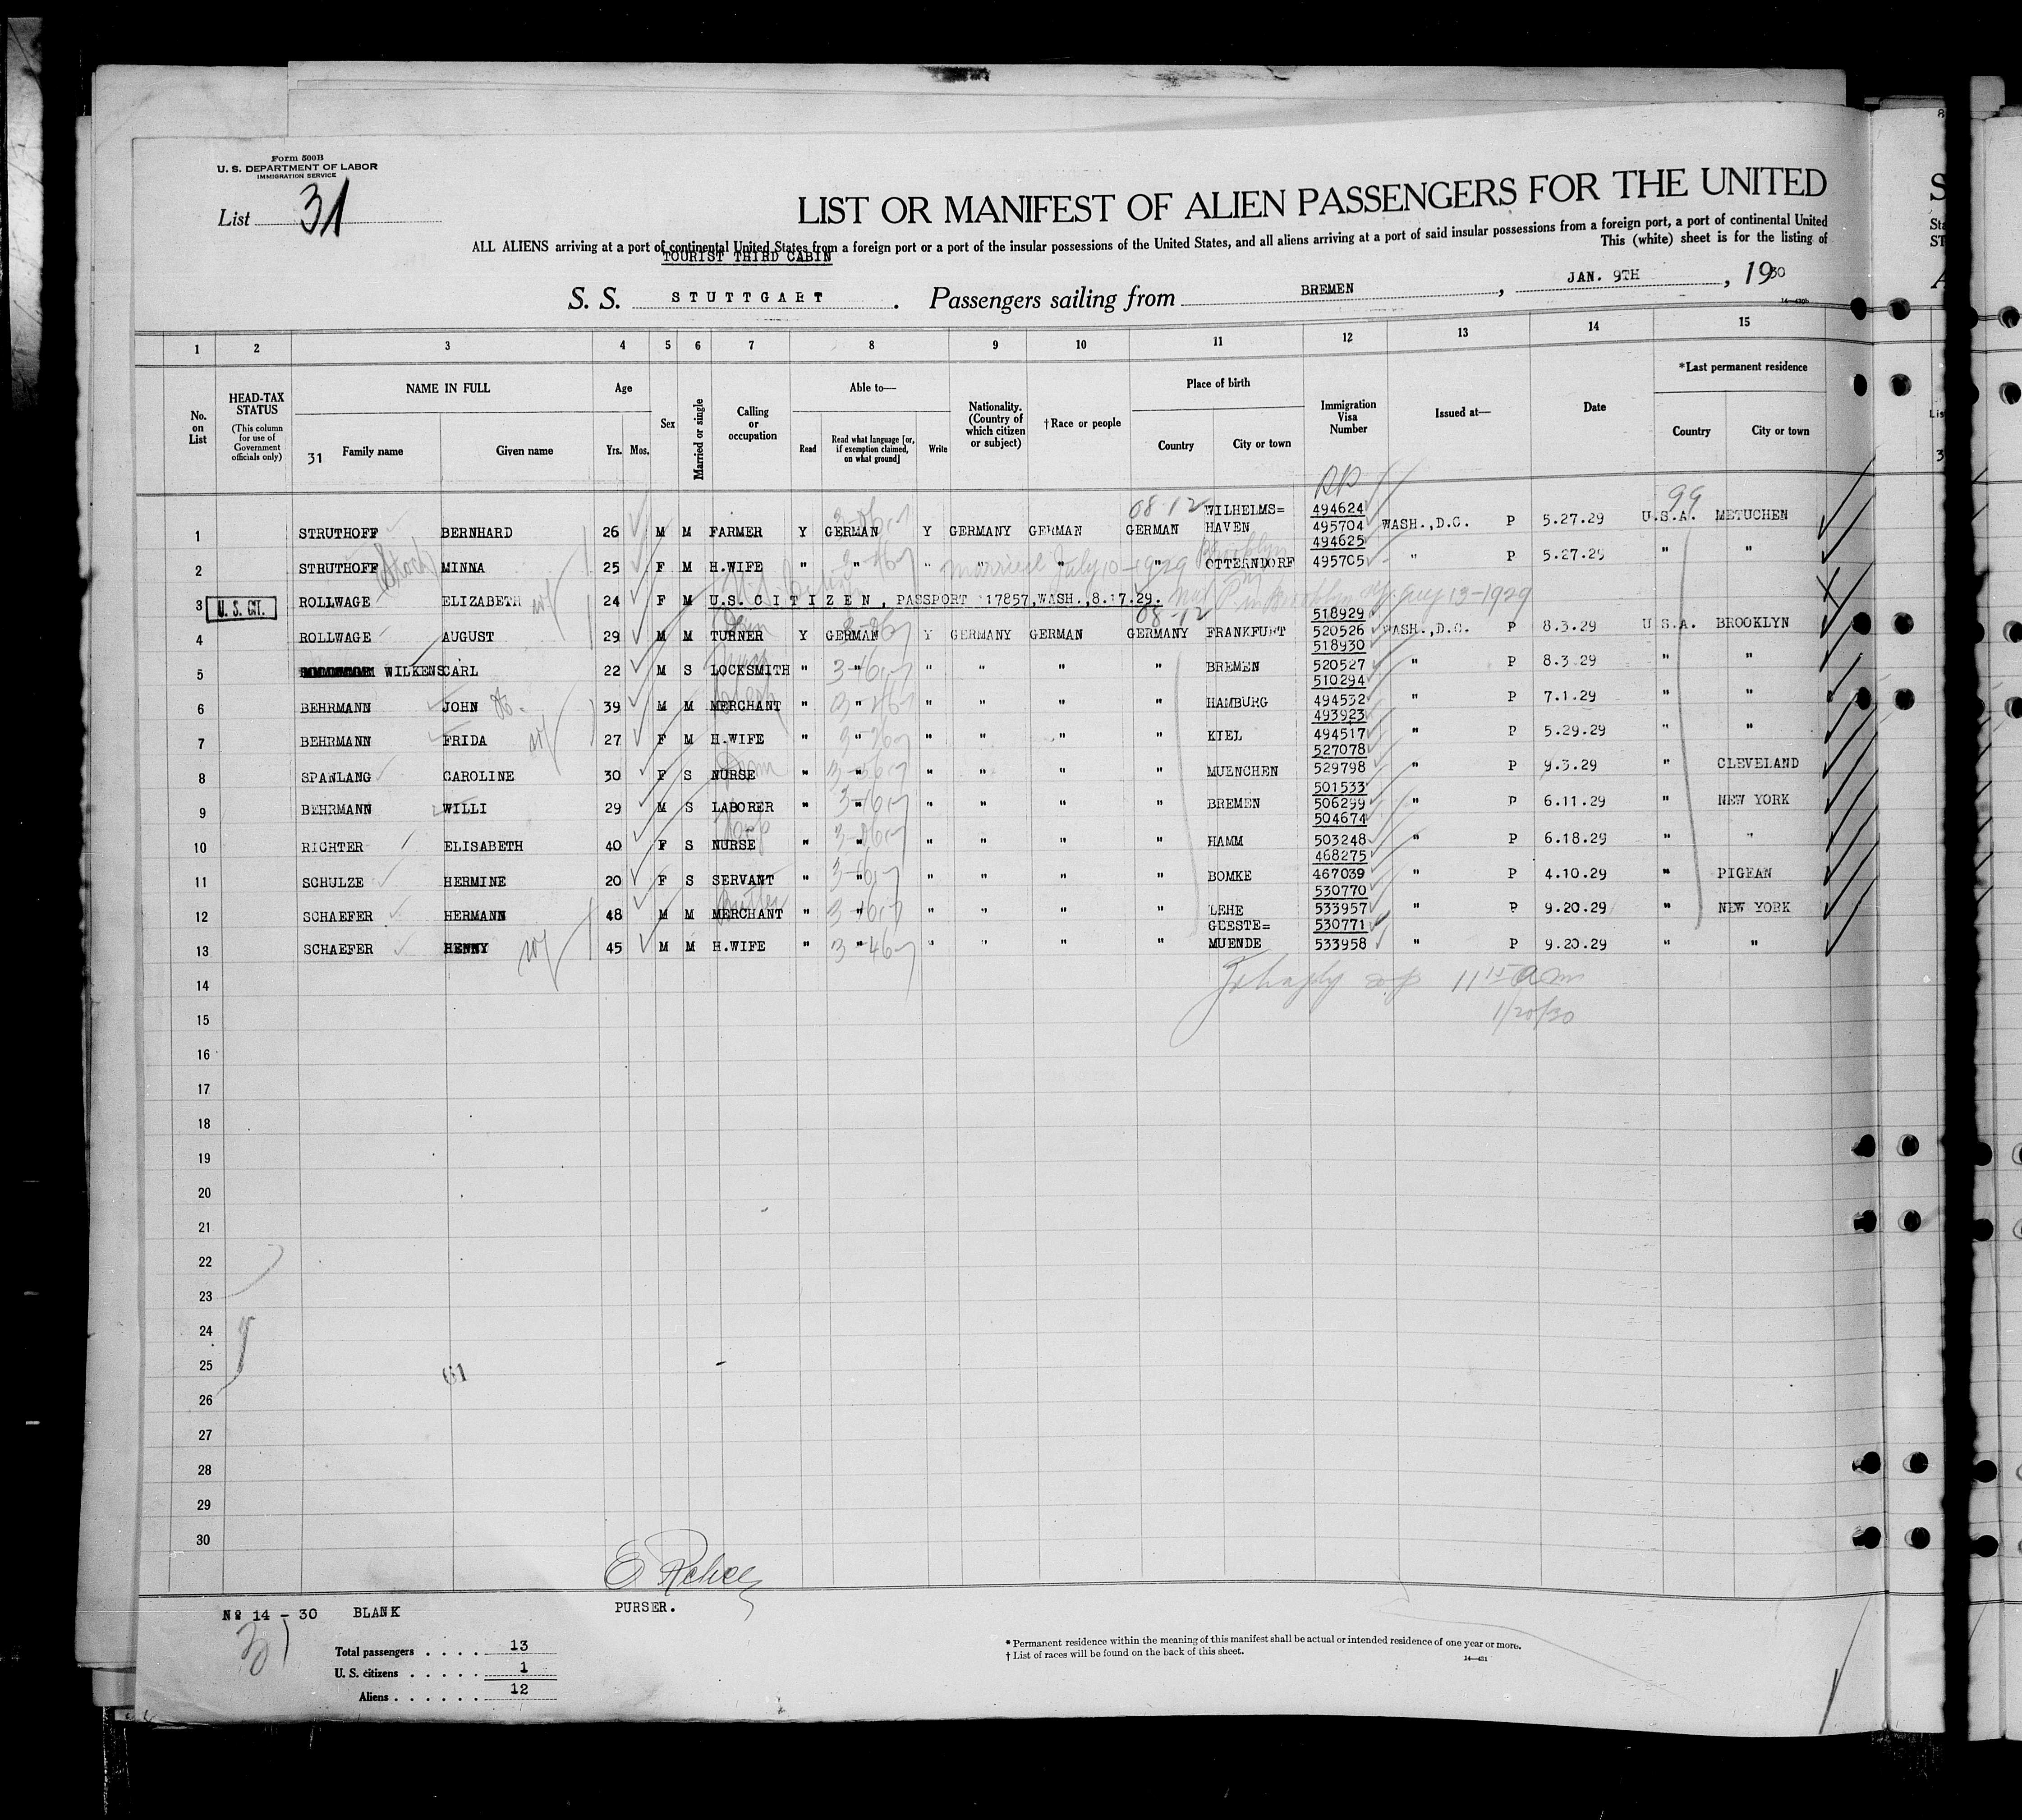 Form 500B
U. S. DEPARTMENT OF LABOR
IMMIGRATION SERVICE
List 31
LIST OR MANIFEST OF ALIEN PASSENGERS FOR THE UNITED
ALL ALIENS arriving at a port of continental United States from a foreign port or a port of the insular possessions of the United States, and all aliens arriving at a port of said insular possessions from a foreign port, a port of continental United
This (white) sheet is for the listing of
TOURIST THIRD CABIN
S. S. STUTTGART. Passengers sailing from BREMEN, JAN. 9TH, 1930
1 2 3 4 5 6 7 8 9 10 11 12 13 14 15
No. on List
HEAD-TAX STATUS
(This column for use of Government officials only)
NAME IN FULL
31 Family name
Given name
Age
Yrs. Mos.
Sex
Married or single
Calling or occupation
Able to—
Read
Read what language [or, if exemption claimed, on what ground]
Write
Nationality. (Country of which citizen or subject)
†Race or people
Place of birth
Country
City or town
Immigration Visa Number
Issued at—
Date
*Last permanent residence
Country
City or town
08-12
99
WILHELMS= 494624
1 STRUTHOFF BERNHARD 26 M M FARMER Y GERMAN Y GERMANY GERMAN GERMAN HAVEN 495704 WASH.,D.C. P 5.27.29 U.S.A. METUCHEN
494625
2 STRUTHOFF MINNA 25 F M H.WIFE " " " " " " OTTERNDORF 495705 " P 5.27.29 " "
married July 10-1929 Brooklyn
3 U. S. CIT. ROLLWAGE ELIZABETH 24 F M U.S. CITIZEN, PASSPORT 17857,WASH.,8.17.29. in Brooklyn Aug 13-1929
08-12 518929
4 ROLLWAGE AUGUST 29 M M TURNER Y GERMAN Y GERMANY GERMAN GERMANY FRANKFURT 520526 WASH.,D.C. P 8.3.29 U.S.A. BROOKLYN
518930
5 WILKENS CARL 22 M S LOCKSMITH " " " " " BREMEN 520527 " P 8.3.29 " "
510294
6 BEHRMANN JOHN 39 M M MERCHANT " " " " " " HAMBURG 494532 " P 7.1.29 " "
493923
7 BEHRMANN FRIDA 27 F M H.WIFE " " " " " " KIEL 494517 " P 5.29.29 " "
527078
8 SPANLANG CAROLINE 30 F S NURSE " " " " " " MUENCHEN 529798 " P 9.3.29 " CLEVELAND
501533
9 BEHRMANN WILLI 29 M S LABORER " " " " " " BREMEN 506299 " P 6.11.29 " NEW YORK
504674
10 RICHTER ELISABETH 40 F S NURSE " " " " " " HAMM 503248 " P 6.18.29 " "
468275
11 SCHULZE HERMINE 20 F S SERVANT " " " " " " BOMKE 467039 " P 4.10.29 " PIGEAN
530770
12 SCHAEFER HERMANN 48 M M MERCHANT " " " " " " LEHE 533957 " P 9.20.29 " NEW YORK
GEESTE= 530771
13 SCHAEFER HENNY 45 M M H.WIFE " " " " " " MUENDE 533958 " P 9.20.29 " "
14
11 15 am
15
1/20/30
16
17
18
19
20
21
22
23
24
25
61
26
27
28
29
30
PURSER.
No 14 - 30 BLANK
Total passengers . . . . 13
U. S. citizens . . . . . 1
Aliens . . . . . . 12
* Permanent residence within the meaning of this manifest shall be actual or intended residence of one year or more.
† List of races will be found on the back of this sheet.